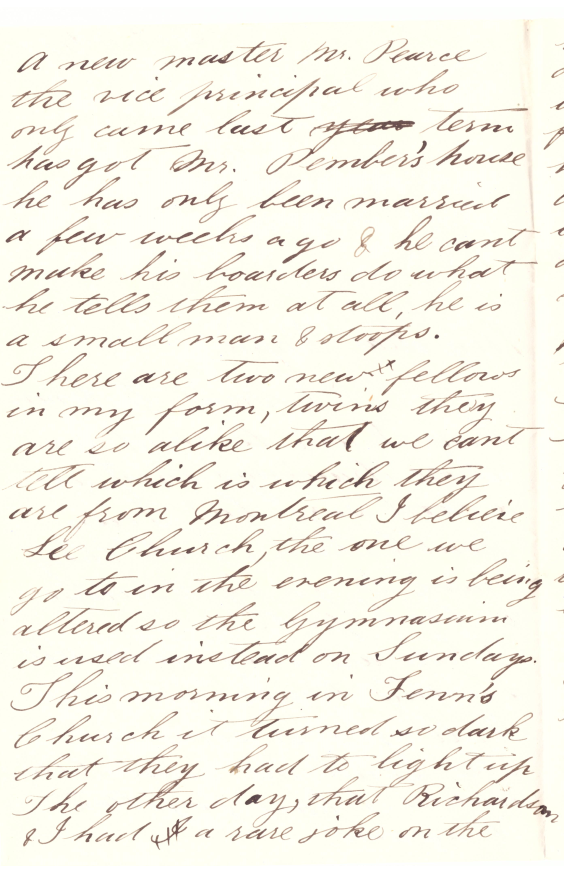 A new master Mr. Pearce
the vice principal who
only came last year term
has got Mr. Pember's house
he has only been married
a few weeks ago & he cant
make his boarders do what
he tells them at all, he is
a small man & stoops.
There are two new fellows
in my form, twins they
are so alike that we cant
tell which is which they
are from Montreal I believe
Lee Church, the one we
go to in the evening is being
altered so the Gymnasium
is used instead on Sundays.
This morning in Fenn's
Church it turned so dark
that they had to light up
The other day, that Richardson
& I had a rare joke on the